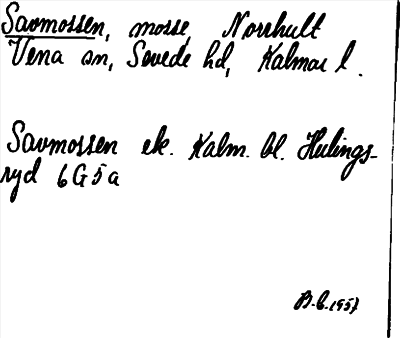 Savmossen, mosse, Norrhult
Vena sn, Sevede hd, Kalmar l.
Savmossen ek. Kalm. bl. Hulings-
ryd 6G5a
B.C. 1957